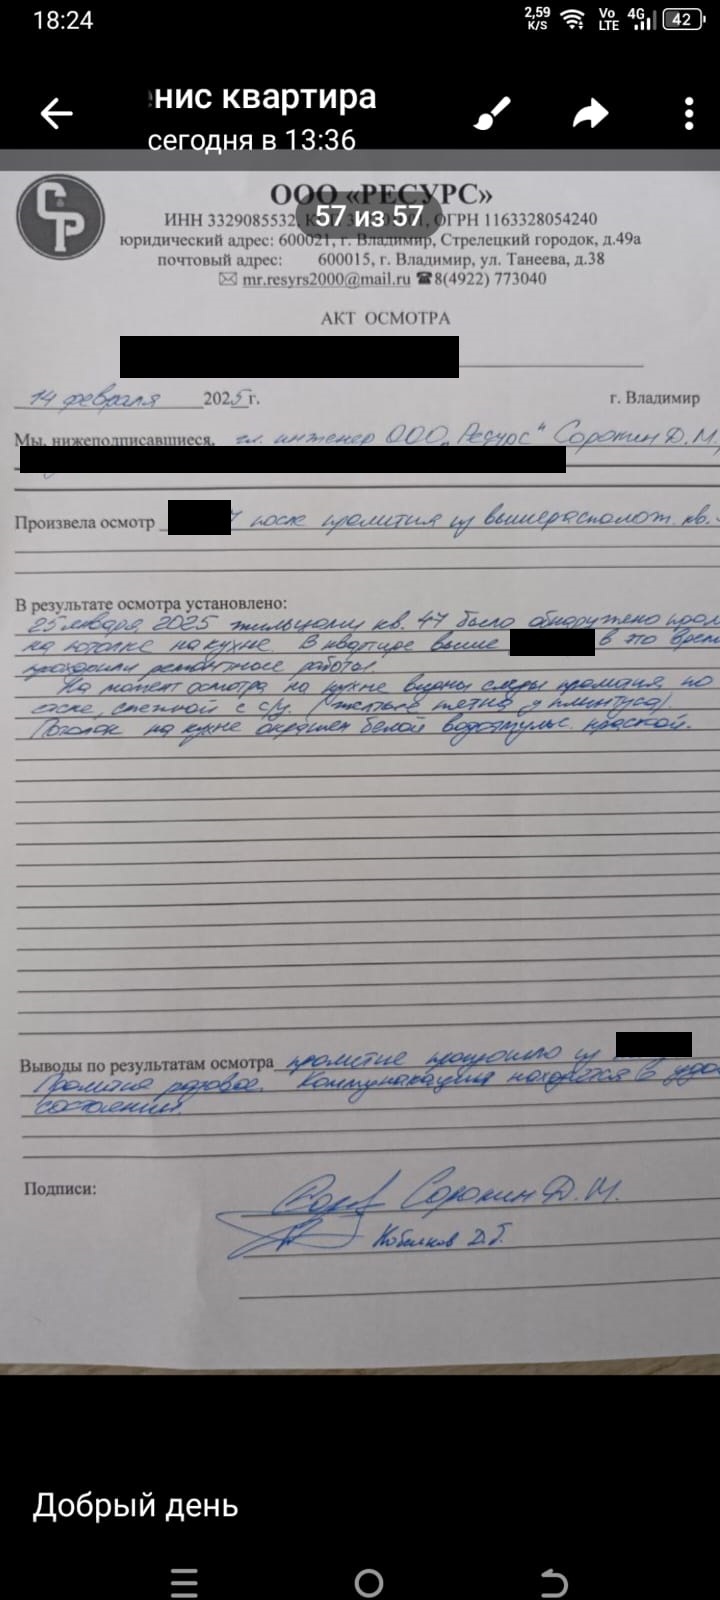 18:24
2,59 K/S
Vo LTE
4G
42
нис квартира
сегодня в 13:36
СР
ООО «РЕСУРС»
57 из 57
ИНН 3329085532, ОГРН 1163328054240
юридический адрес: 600021, г. Владимир, Стрелецкий городок, д.49а
почтовый адрес: 600015, г. Владимир, ул. Танеева, д.38
mr.resyrs2000@mail.ru 8(4922) 773040
АКТ ОСМОТРА
14 февраля 2025г. г. Владимир
Мы, нижеподписавшиеся, гл. инженер ООО „Ресурс" Сорокин Д.М,
Произвела осмотр после пролития из вышерасполож. кв.
В результате осмотра установлено:
25 января 2025 жильцами кв. 47 было обнаружено
на потолке на кухне. В квартире выше в это врем
проходили ремонтные работы.
На момент осмотра на кухне видны следы пролития по
смежной с с/у. (желтые пятна у плинтуса)
Потолок на кухне окрашен белой водоэмульс. краской.
Выводы по результатам осмотра пролитие произошло из
Пролитие разовое. Коммуникации находятся в
состоянии.
Подписи: Сорокин Д.М.
Кобелков Д.Г.
Добрый день